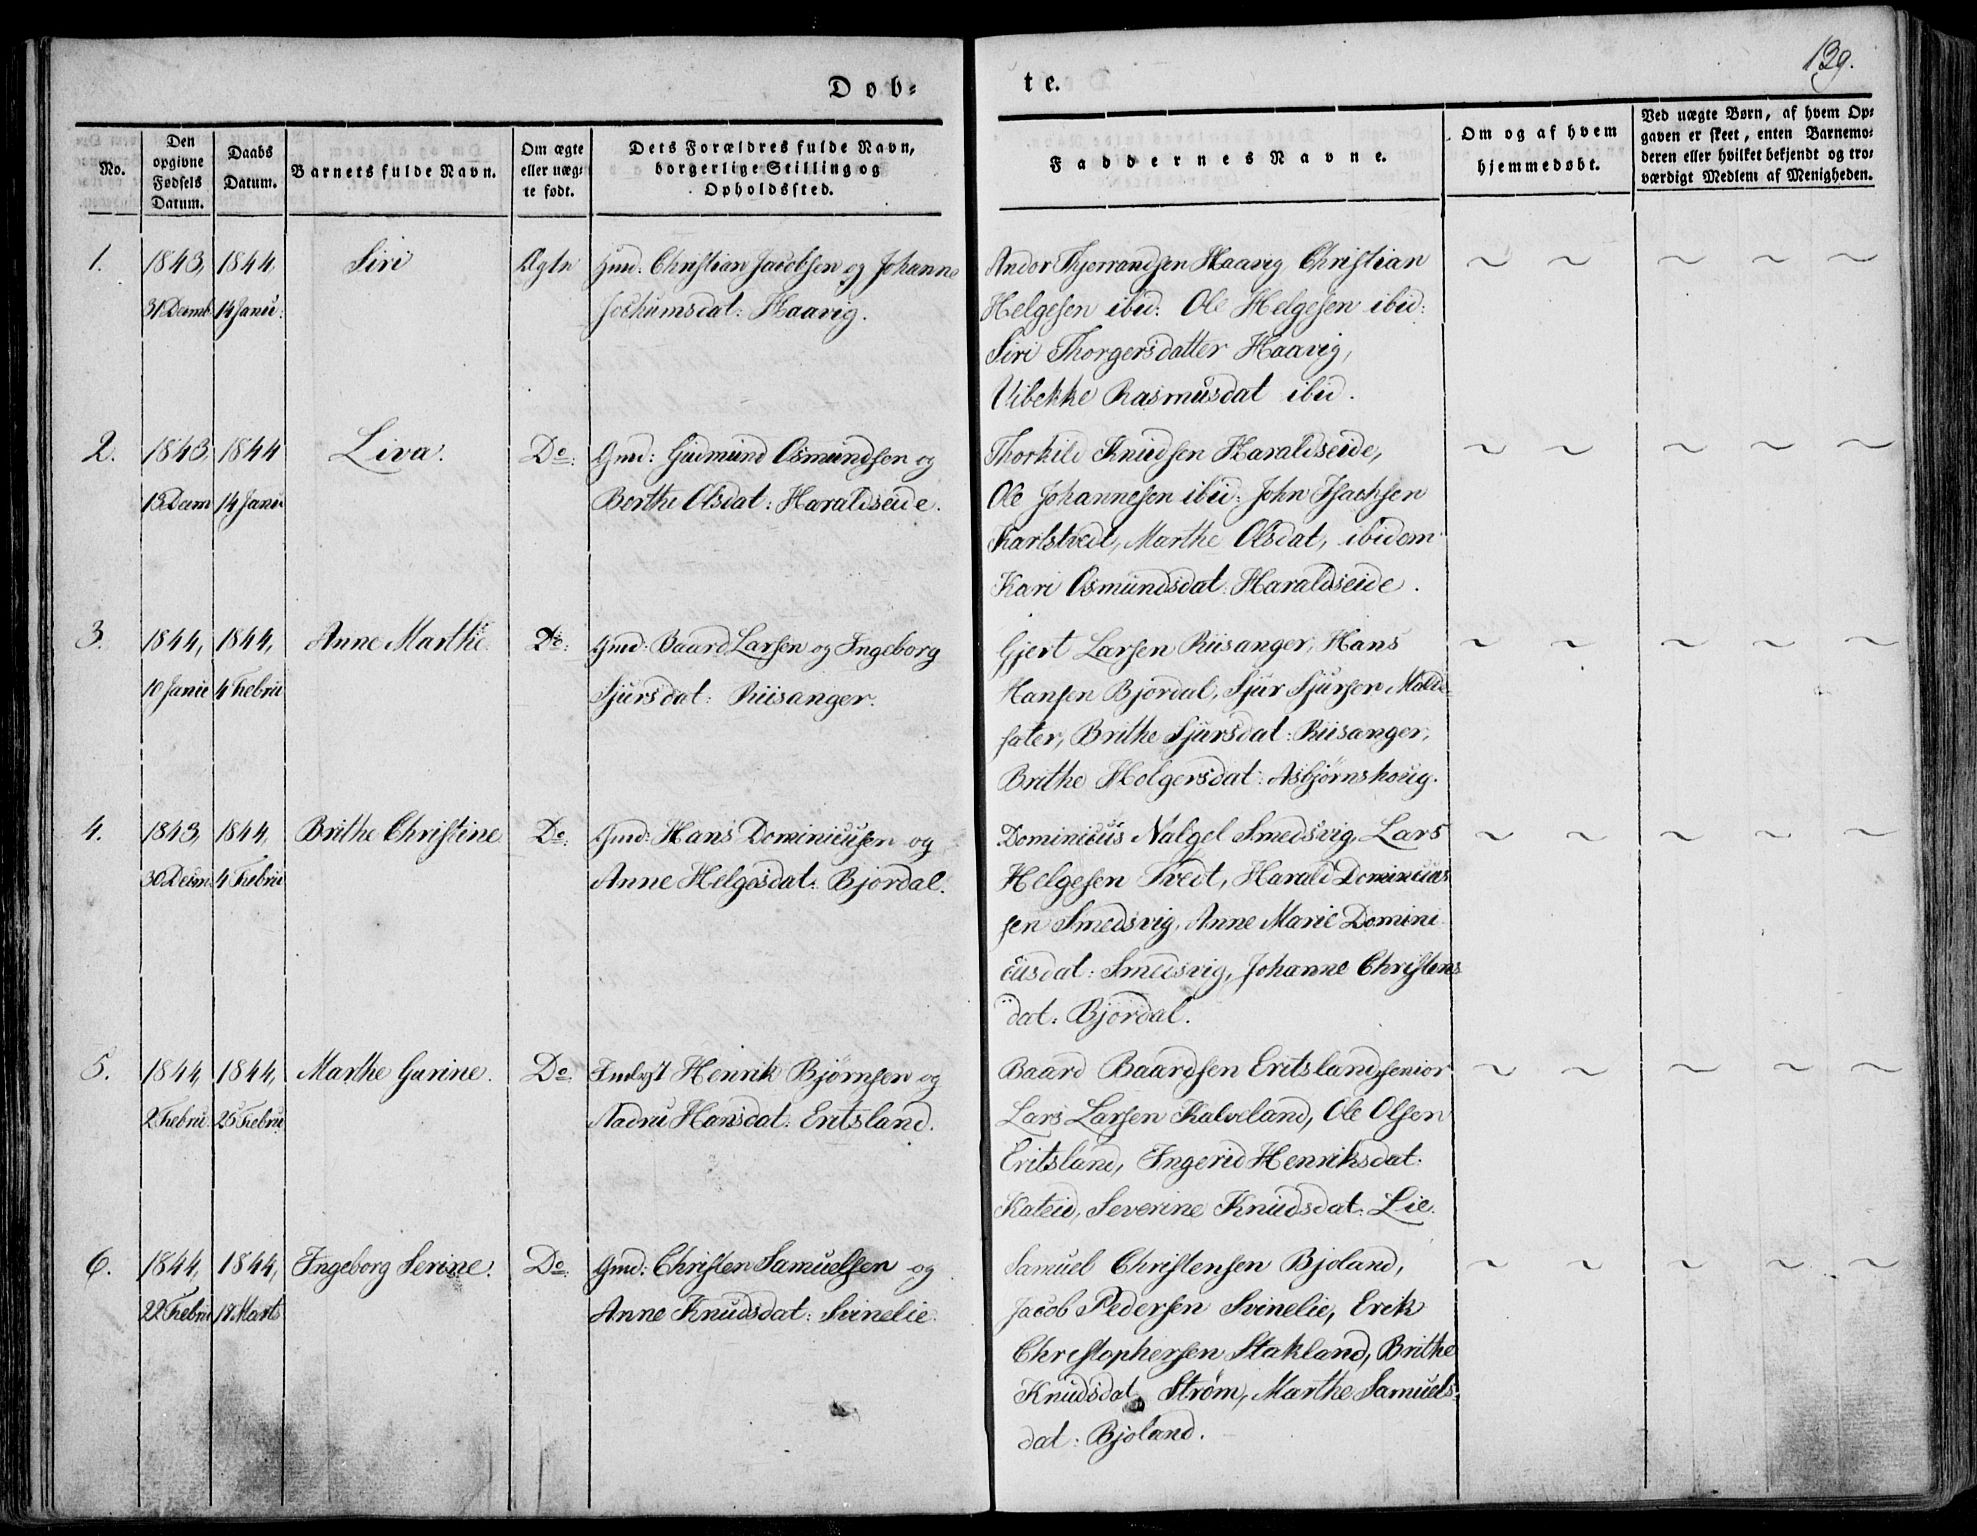 139.
Døb-
te.
No.
Den
opgivne
Fødsels
Datum.
Daabs
Datum.
Barnets fulde Navn.
Om ægte
eller uæg-
te født.
Dets Forældres fulde Navn,
borgerlige Stilling og
Opholdssted.
Faddernes Navne.
Om og af hvem
hjemmedøbt.
Ved uægte Børn, af hvem Op-
gaven er skeet, enten Barnemo-
deren eller hvilket bekjendt og tro-
værdigt Medlem af Menigheden.
1.
1843,
31 Decmb
1844,
14 Janu:
Siri
Ægte
Gmd: Christian Jacobsen og Johanne
Jochumsdat: Haavig.
Andor Thjerrandsen Haavig Christian
Helgesen ibid: Ole Helgesen ibid:
Siri Thorgersdatter Haavig,
Vibekke Rasmusdat ibid.
2.
1843,
13 Decm
1844
14 Janu
Liva.
Do:
Gmd: Gudmund Osmundsen og
Berthe Olsdat: Haraldseide.
Thorkild Knudsen Haraldseide,
Ole Johannesen ibid: John Isachsen
Karlstvedt, Marthe Olsdat, ibidem
Kari Osmundsdat: Haraldseide.
3.
1844,
10 Janu
1844,
4 Febru
Anne Marthe.
Do:
Gmd: Baard Larsen og Ingeborg
Sjursdat: Riisanger.
Gjert Larsen Riisanger, Hans
Hansen Bjordal, Sjur Sjursen Molde-
sater, Brithe Sjursdat: Riisanger,
Brithe Holgersdat: Asbjørnshoug.
4.
1843,
30 Decm
1844,
4 Febru
Brithe Christine
Do:
Gmd: Hans Dominicusen og
Anne Helgesdat: Bjordal.
Dominicus Nalgel Smedsvig, Lars
Helgesen Tvedt, Harald Dominicus
sen Smedsvig, Anne Marie Domini
cusdat: Smedsvig, Johanne Christens
dat: Bjordal.
5.
1844,
2 Febru
1844,
25 Febru
Marthe Gurine.
Do:
Indst Henrik Bjørnsen og
Hansdat: Eritsland.
Baard Baardsen Eritsland senior
Lars Larsen Kalveland, Ole Olsen
Eritsland, Ingerid Henriksdat:
Kateid, Severine Knudsdat: Lie.
6.
1844,
22 Febru
1844,
18 Marts
Ingeborg Serine.
Do:
Gmd: Christen Samuelsen og
Anne Knudsdat: Svinelie.
Samuel Christensen Bjoland,
Jacob Pedersen Svinelie, Erik
Christophersen Stakland, Brithe
Knudsdat Strøm, Marthe Samuels-
dat: Bjoland.